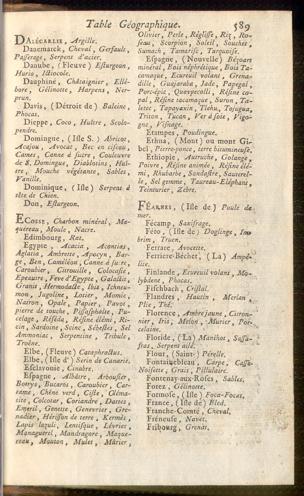 Table Géographique. 589
DALÉCARLIE, Argille.
Danemarck, Cheval, Gerfault,
Passerage, Serpent d'acier.
Danube, (Fleuve) Esturgeon,
Huria, Istiocole.
Dauphiné, Châtaignier, Ellé-
bore, Gélinotte, Harpens, Ner-
prun.
Davis, (Détroit de) Baleine,
Phocas.
Dieppe, Coco, Huître, Scolo-
pendre.
Domingue, (Isle S.) Abricot,
Acajou, Avocat, Bec en ciseau,
Cannes, Canne à sucre, Couleuvre
de S. Domingue, Diablotins, Huî-
tre, Mouche végétante, Sables,
Vanille.
Dominique, (Isle) Serpent à
tête de Chien.
Don, Esturgeon.
ECOSSE, Charbon minéral, Ma-
quereau, Moule, Nacre.
Edimbourg, Rat.
Egypte, Acacia, Aconias,
Aglatia, Ambrette, Apocyn, Bar-
ge, Ben, Caméléon, Canne à sucre,
Caroubier, Citrouille, Colocasie,
Epeautre, Feve d'Egypte, Galactit,
Granit, Hermodacte, Ibis, Ichneu-
mon, Jugoline, Lotier, Momie,
Nairon, Opale, Papier, Pavot,
pierre de touche, Pissasphalte, Pu-
celage, Réséda, Résine élémi, Ri-
cin, Sardoine, Scinc, Sébestes, Sel
Ammoniac, Serpentine, Tribule,
Troëne.
Elbe, (Fleuve) Camphrellus.
Elbe, (Isle d') Serin de Canarie.
Esclavonie, Cinabre.
Espagne, Albâtre, Arbousier,
Botrys, Bucaros, Caroubier, Car-
rame, Chêne verd, Ciste, Cléma-
tite, Colcotar, Coriandre, Dattes,
Emeril, Genette, Genevrier, Gre-
nadier, Hérisson de terre, Kermès,
Lapis lazuli, Lentisque, Lévrier,
Managuerel, Mandragore, Maque-
reau, Mouton, Mulet, Mûrier,
Olivier, Perle, Réglisse, Riz, Ro-
seau, Scorpion, Soleil, Souchet,
Sumach, Tamarisc, Turquoise.
Espagne, (Nouvelle) Bézoard
minéral, Bois néphrétique, Bois Ta-
camaque, Ecureuil volant, Grena-
dille, Guajaraba, Jade, Papegai,
Porc-épic, Quaypecolli, Résine co-
pal, Résine tacamaque, Suron, Ta-
letec, Tapayaxin, Tlehu, Tajugua,
Triton, Tucan, Ver à soie, Vigo-
gne, Visnage.
Etampes, Poudingue.
Ethna, (Mont) ou mont Gi-
bel, Pierre-ponce, terre bitumineuse.
Ethiopie, Autruche, Galange,
Poivre, Résine animée, Résine élé-
mi, Rhubarbe, Sandastre, Sauterel-
le, Sel gemme, Taureau-Eléphans,
Teinturier, Zebre.
FÉARNES, (Isle de) Poule de
mer.
Fécamp, Saxifrage.
Féo, (Isle de) Doglinge, Im-
brim, Truen.
Ferrare, Avocette.
Ferriere-Béchet, (La) Ampé-
lite.
Finlande, Ecureuil volans, Mo-
lybdene, Phocas.
Fischbach, Cristal.
Flandres, Hautin, Merlan,
Plie, Thé.
Florence, Ambre jaune, Citron-
nier, Iris, Melon, Murier, Por-
celaine.
Floride, (La) Manihot, Sassa-
fras, Serpent ailé.
Flour, (Saint-) Pérelle.
Fontainebleau, Carpe, Casse-
Noisette, Grais, Pillulaire.
Fontenay-aux-Roses, Sables.
Forez, Gélinotte.
Formose, (Isle) Foca-Focas.
France, (Isle de) Bled.
Franche-Comté, Cheval.
Fréneuse, Navet.
Fribourg, Grenat.